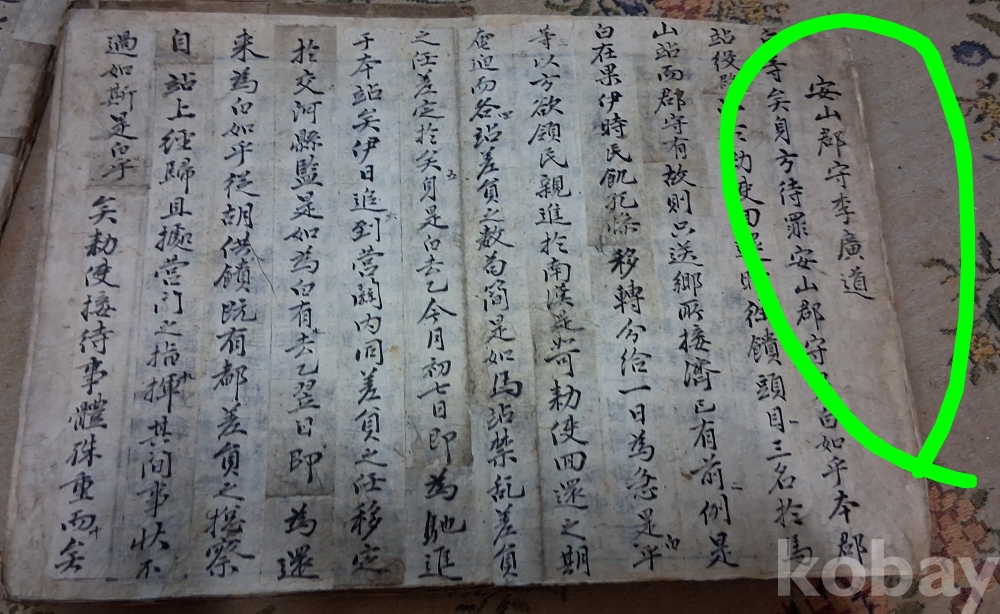 安山郡守李廣道
等矣身方待罪安山郡守白如乎本郡
站役勅使回還時饋頭目三名於馬
山站而郡守有故則只送鄉所接濟已有前例是
白在果伊時民飢孔慘移轉分給一日為急是乎
等以方欲領民親進於南漢是如可勅使回還之期
奄迫而各站差員之數苟簡是如馬站禁亂差員
之任差定於矣身是白去乙今月初七日即為馳進
于本站矣伊日追到營關內同差員之任移定
於交河縣監是如為白有去乙翌日即為還
来為白如乎從胡供饋既有都差員之摠察
自站上经歸且據營门之指揮其间事状不
過如斯是白乎矣勅使接待事體殊重而矣
kobay